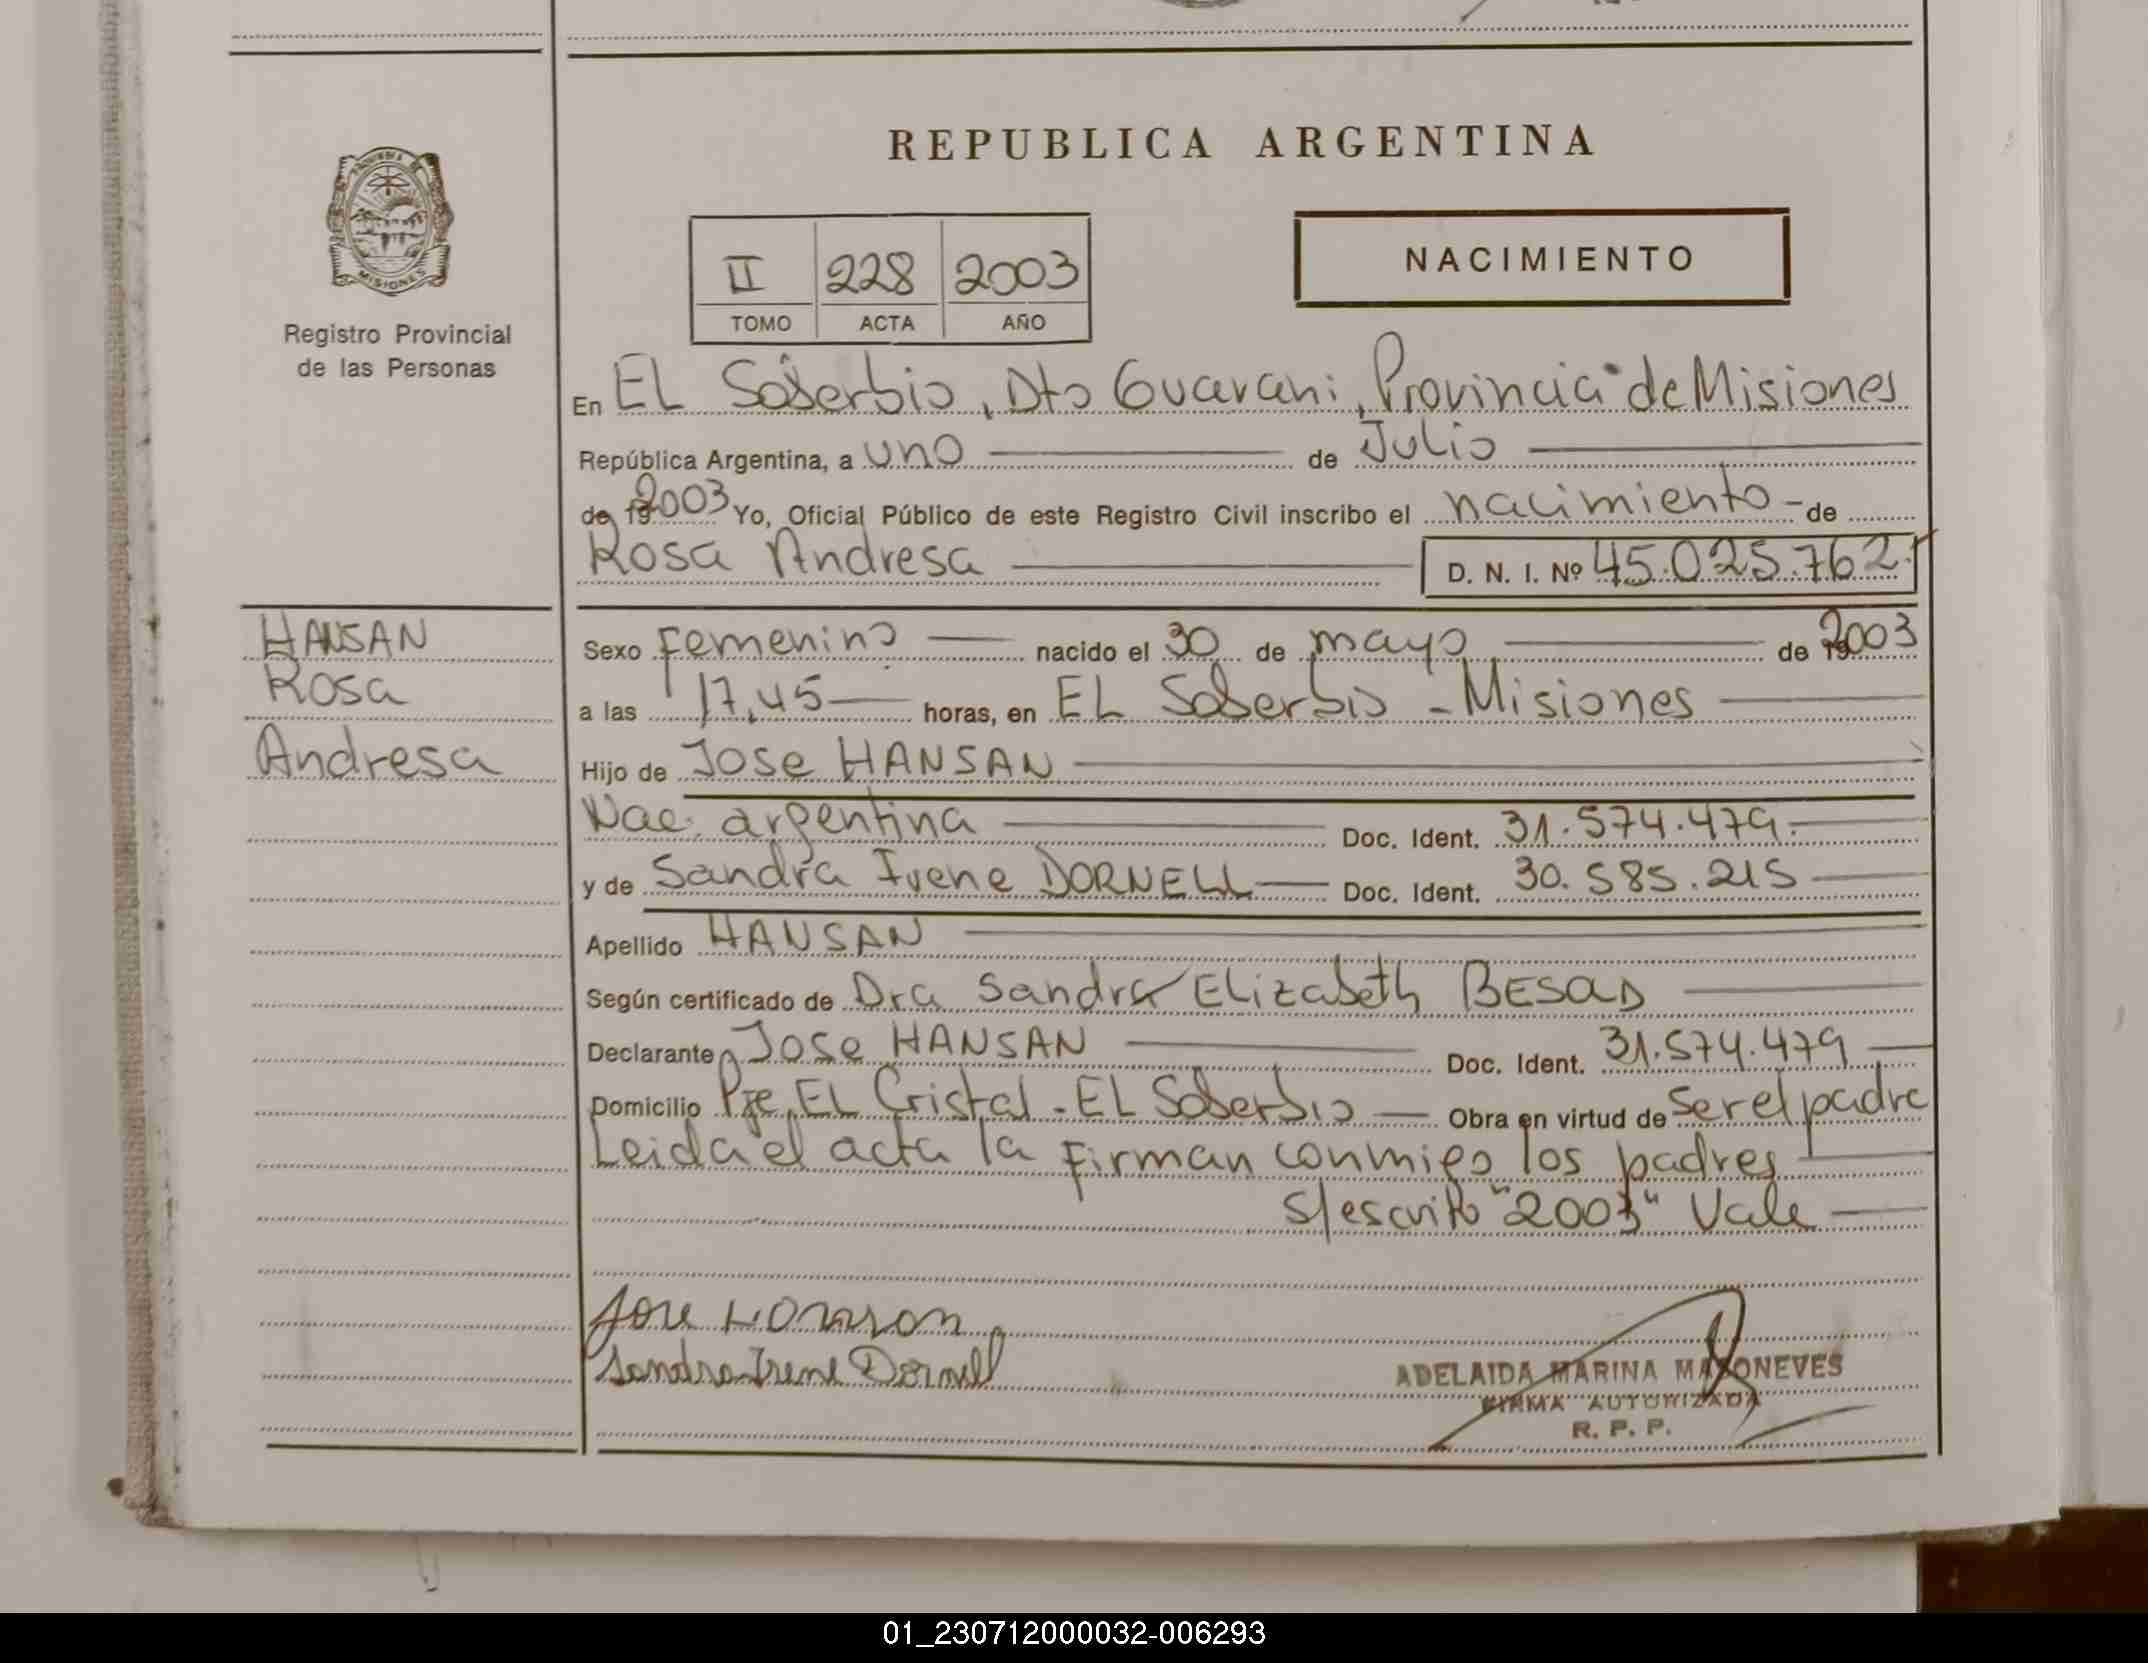 REPUBLICA ARGENTINA
PROVINCIA DE
MISIONES
Registro Provincial
de las Personas
II 228 2003
TOMO ACTA AÑO
NACIMIENTO
En EL Soberbio, Dto Guarani, Provincia de Misiones
República Argentina, a uno de Julio
de 2003 Yo, Oficial Público de este Registro Civil inscribo el nacimiento - de
Rosa Andresa D. N. I. Nº 45.025.762.
HANSAN
Rosa
Andresa
Sexo Femenino nacido el 30 de mayo de 2003
a las 17,45 horas, en EL Soberbio - Misiones
Hijo de Jose HANSAN
Nac. argentina Doc. Ident. 31.574.479.
y de Sandra Irene DORNELL Doc. Ident. 30.585.215
Apellido HANSAN
Según certificado de Dra Sandra Elizabeth BESAD
Declarante Jose HANSAN Doc. Ident. 31.574.479
Domicilio Pje EL Cristal - EL Soberbio Obra en virtud de ser el padre
Leida el acta la firman conmigo los padres
s/escrito "2003" Vale
Sandra Irene Dornell
ADELAIDA MARINA
FIRMA AUTORIZADA
R. P. P.
01_230712000032-006293